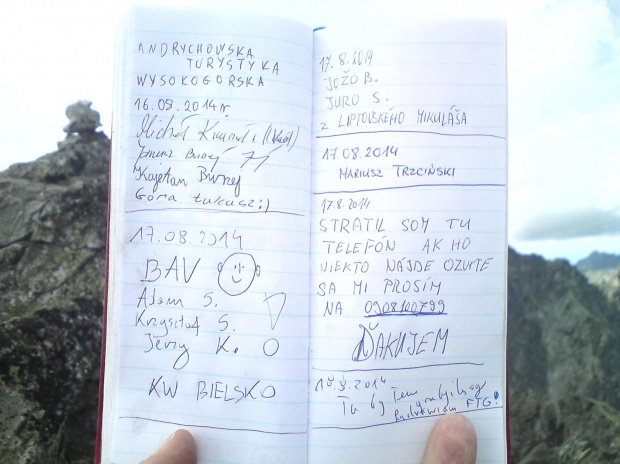 ANDRYCHOWSKA
TURYSTYKA
WYSOKOGÓRSKA
16.08.2014r.
Michał
Janusz Burzej 77
Kajetan Burzej
Góra Łukasz;)
17.08.2014
BAV
Adam S.
Krzysztof S.
Jerzy K.
KW BIELSKO
17.8.2014
JOŽO B.
JURO S.
z LIPTOVSKÉHO MIKULÁŠA
17.08.2014
MARIUSZ TRZCIŃSKI
17.8.2014
STRATIL SOM TU
TELEFÓN AK HO
NIEKTO NÁJDE OZVITE
SA MI PROSÍM
NA 0908100799
ĎAKUJEM
18.8.2014
Tu był
FTG!